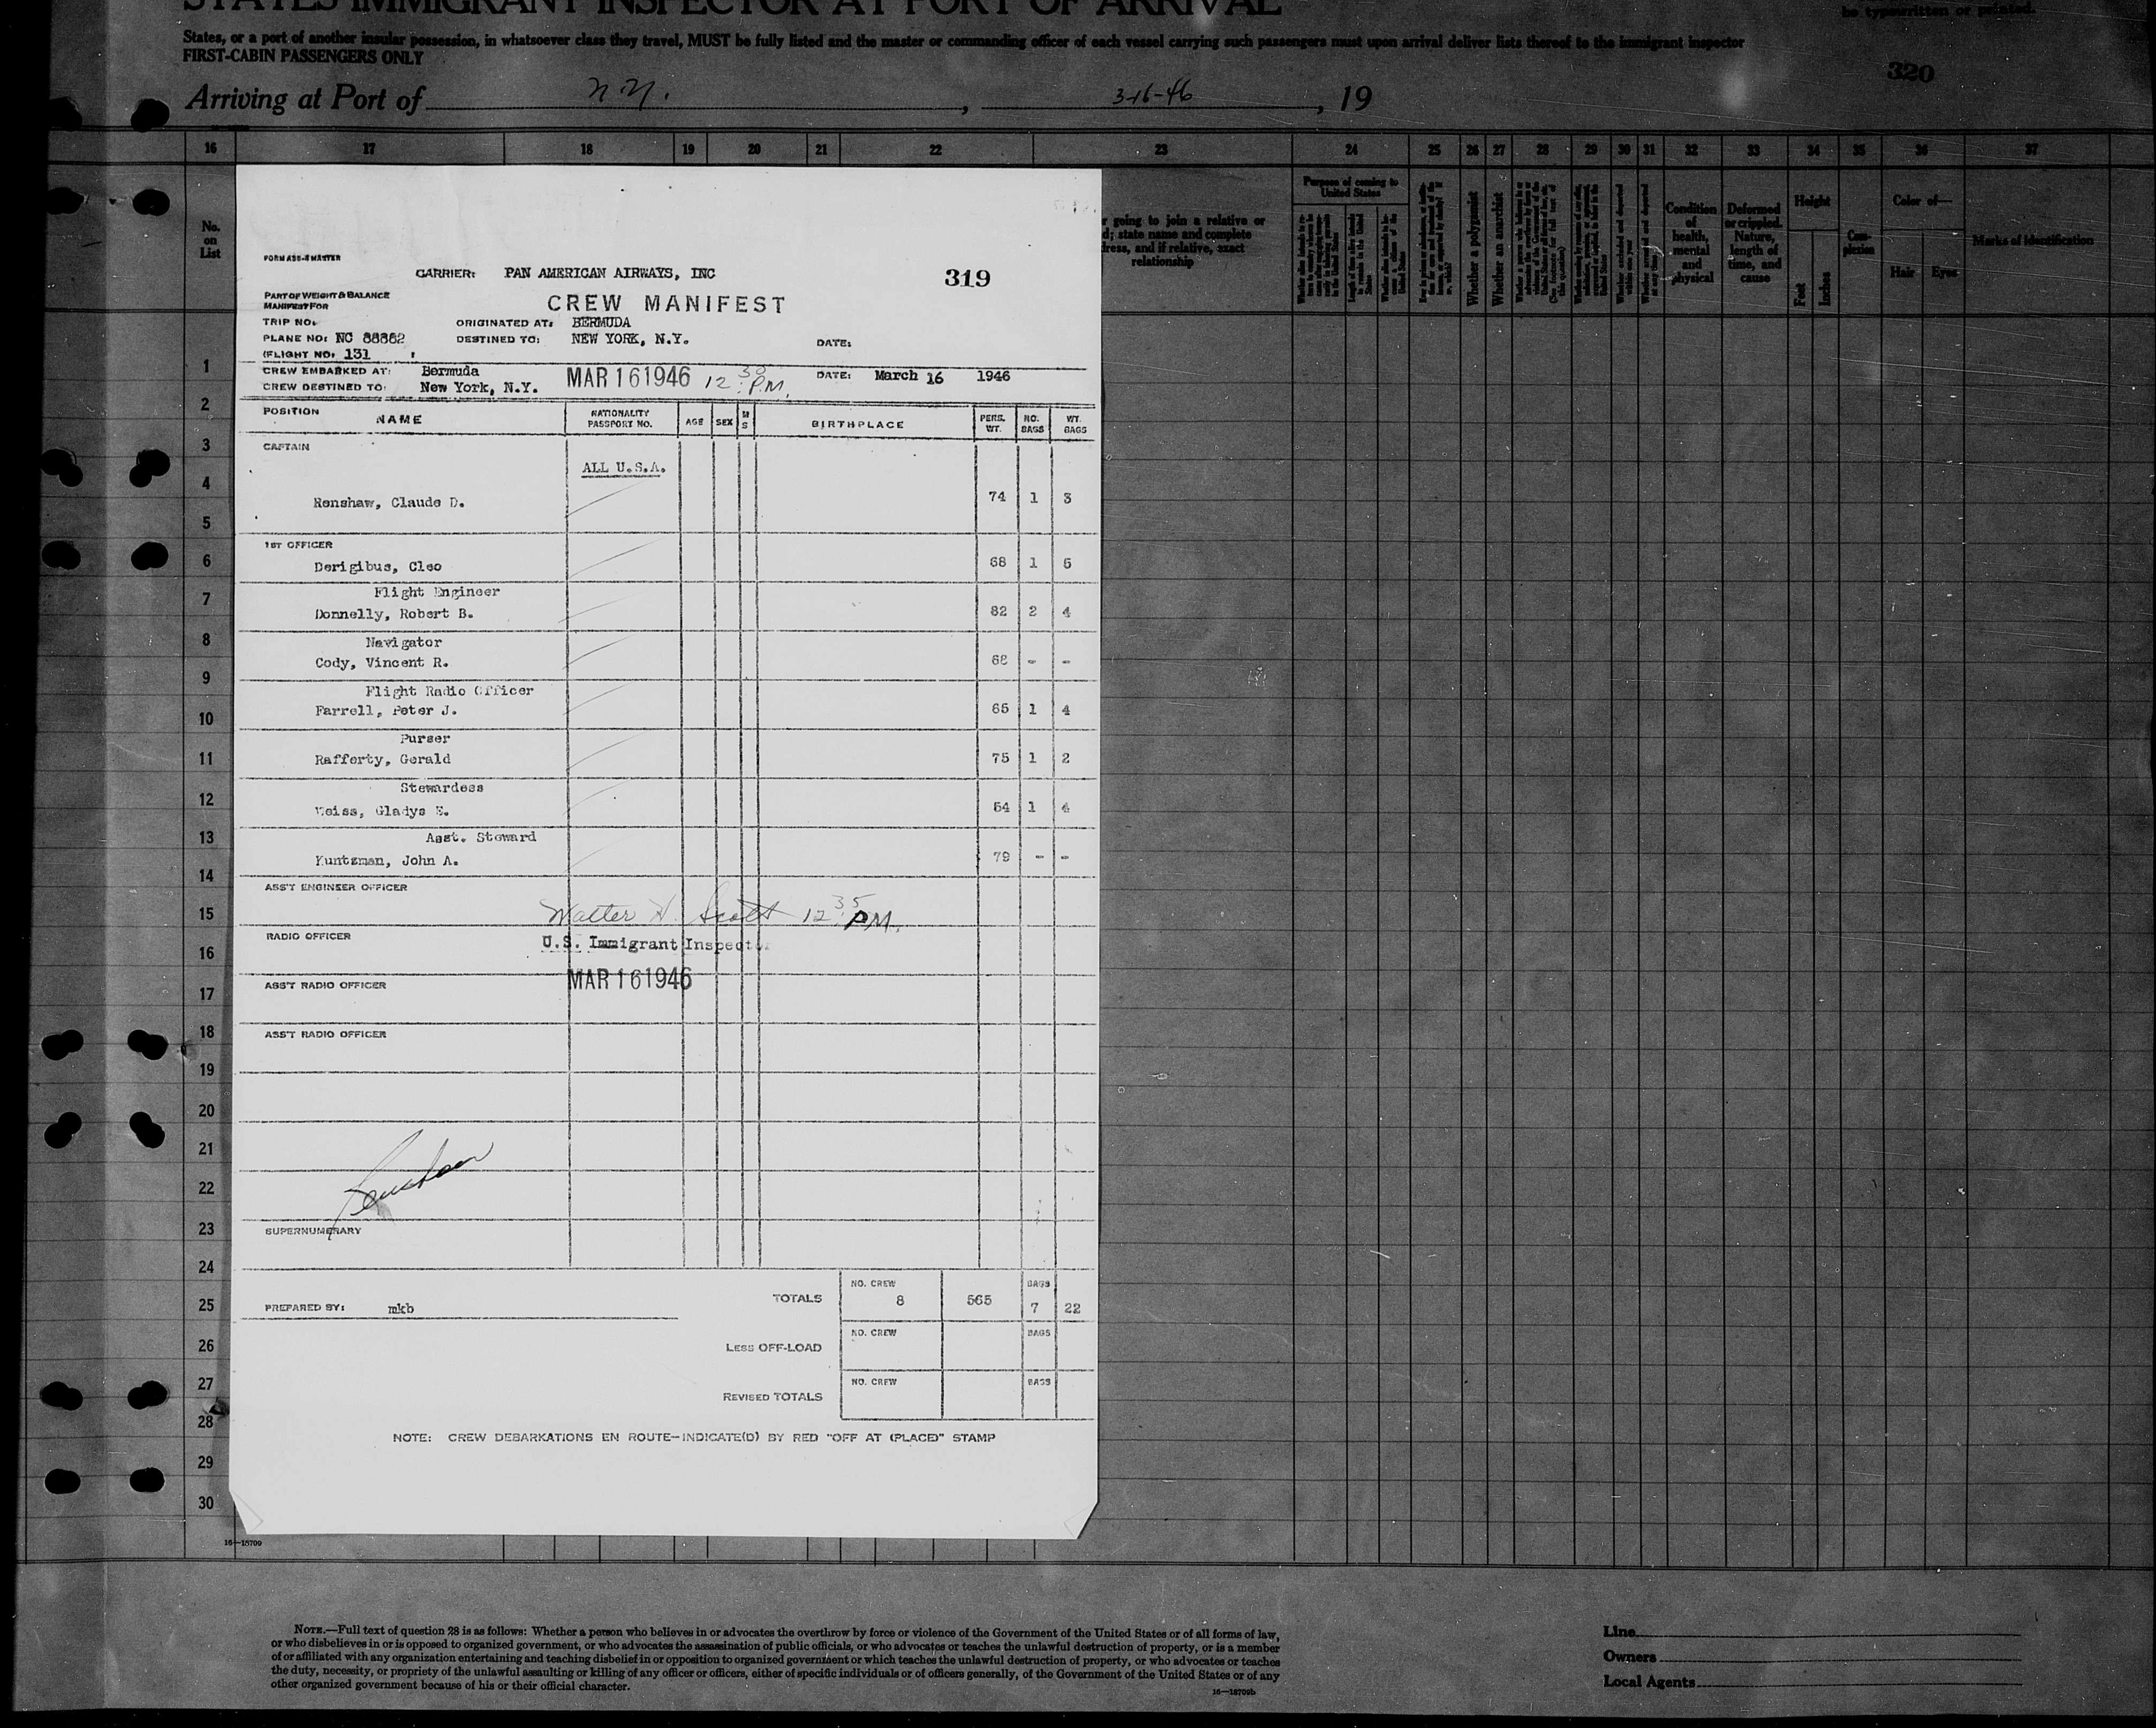 STATES IMMIGRANT INSPECTOR AT PORT OF ARRIVAL
be typewritten or printed.
States, or a port of another insular possession, in whatsoever class they travel, MUST be fully listed and the master or commanding officer of each vessel carrying such passengers must upon arrival deliver lists thereof to the immigrant inspector
FIRST-CABIN PASSENGERS ONLY
320
Arriving at Port of N.Y. , 3-16-46 , 19
16 17 18 19 20 21 22 23 24 25 26 27 28 29 30 31 32 33 34 35 36 37
No. on List
going to join a relative or
state name and complete
and if relative, exact
relationship
Purpose of coming to United States
Whether a polygamist
Whether an anarchist
Condition of health, mental and physical
Deformed or crippled. Nature, length of time, and cause
Height
Feet
Inches
Complexion
Color of—
Hair
Eyes
Marks of identification
CARRIER: PAN AMERICAN AIRWAYS, INC
319
PART OF WEIGHT & BALANCE
MANIFEST FOR
CREW MANIFEST
TRIP NO:
ORIGINATED AT: BERMUDA
PLANE NO: NC 88882
DESTINED TO: NEW YORK, N.Y.
DATE:
(FLIGHT NO: 131
CREW EMBARKED AT: Bermuda
MAR 16 1946 12:30 P.M.
DATE: March 16 1946
CREW DESTINED TO: New York, N.Y.
POSITION NAME NATIONALITY PASSPORT NO. AGE SEX M S BIRTHPLACE PERS. WT. NO. BAGS WT. BAGS
CAPTAIN
ALL U.S.A.
Renshaw, Claude D. 74 1 3
1ST OFFICER
Derigibus, Cleo 68 1 5
Flight Engineer
Donnelly, Robert B. 82 2 4
Navigator
Cody, Vincent R. 68 - -
Flight Radio Officer
Farrell, Peter J. 65 1 4
Purser
Rafferty, Gerald 75 1 2
Stewardess
Weiss, Gladys E. 54 1 4
Asst. Steward
Kuntzman, John A. 79 - -
ASS'T ENGINEER OFFICER
Walter H. Scott 12:35 P.M.
RADIO OFFICER
U.S. Immigrant Inspector
MAR 16 1946
ASS'T RADIO OFFICER
ASS'T RADIO OFFICER
Renshaw
SUPERNUMERARY
TOTALS NO. CREW 8 565 BAGS 7 22
PREPARED BY: mkb
LESS OFF-LOAD NO. CREW BAGS
REVISED TOTALS NO. CREW BAGS
NOTE: CREW DEBARKATIONS EN ROUTE—INDICATE(D) BY RED "OFF AT (PLACE)" STAMP
1
2
3
4
5
6
7
8
9
10
11
12
13
14
15
16
17
18
19
20
21
22
23
24
25
26
27
28
29
30
16—18709
NOTE.—Full text of question 28 is as follows: Whether a person who believes in or advocates the overthrow by force or violence of the Government of the United States or of all forms of law,
or who disbelieves in or is opposed to organized government, or who advocates the assassination of public officials, or who advocates or teaches the unlawful destruction of property, or is a member
of or affiliated with any organization entertaining and teaching disbelief in or opposition to organized government or which teaches the unlawful destruction of property, or who advocates or teaches
the duty, necessity, or propriety of the unlawful assaulting or killing of any officer or officers, either of specific individuals or of officers generally, of the Government of the United States or of any
other organized government because of his or their official character.
16—18709b
Line
Owners
Local Agents